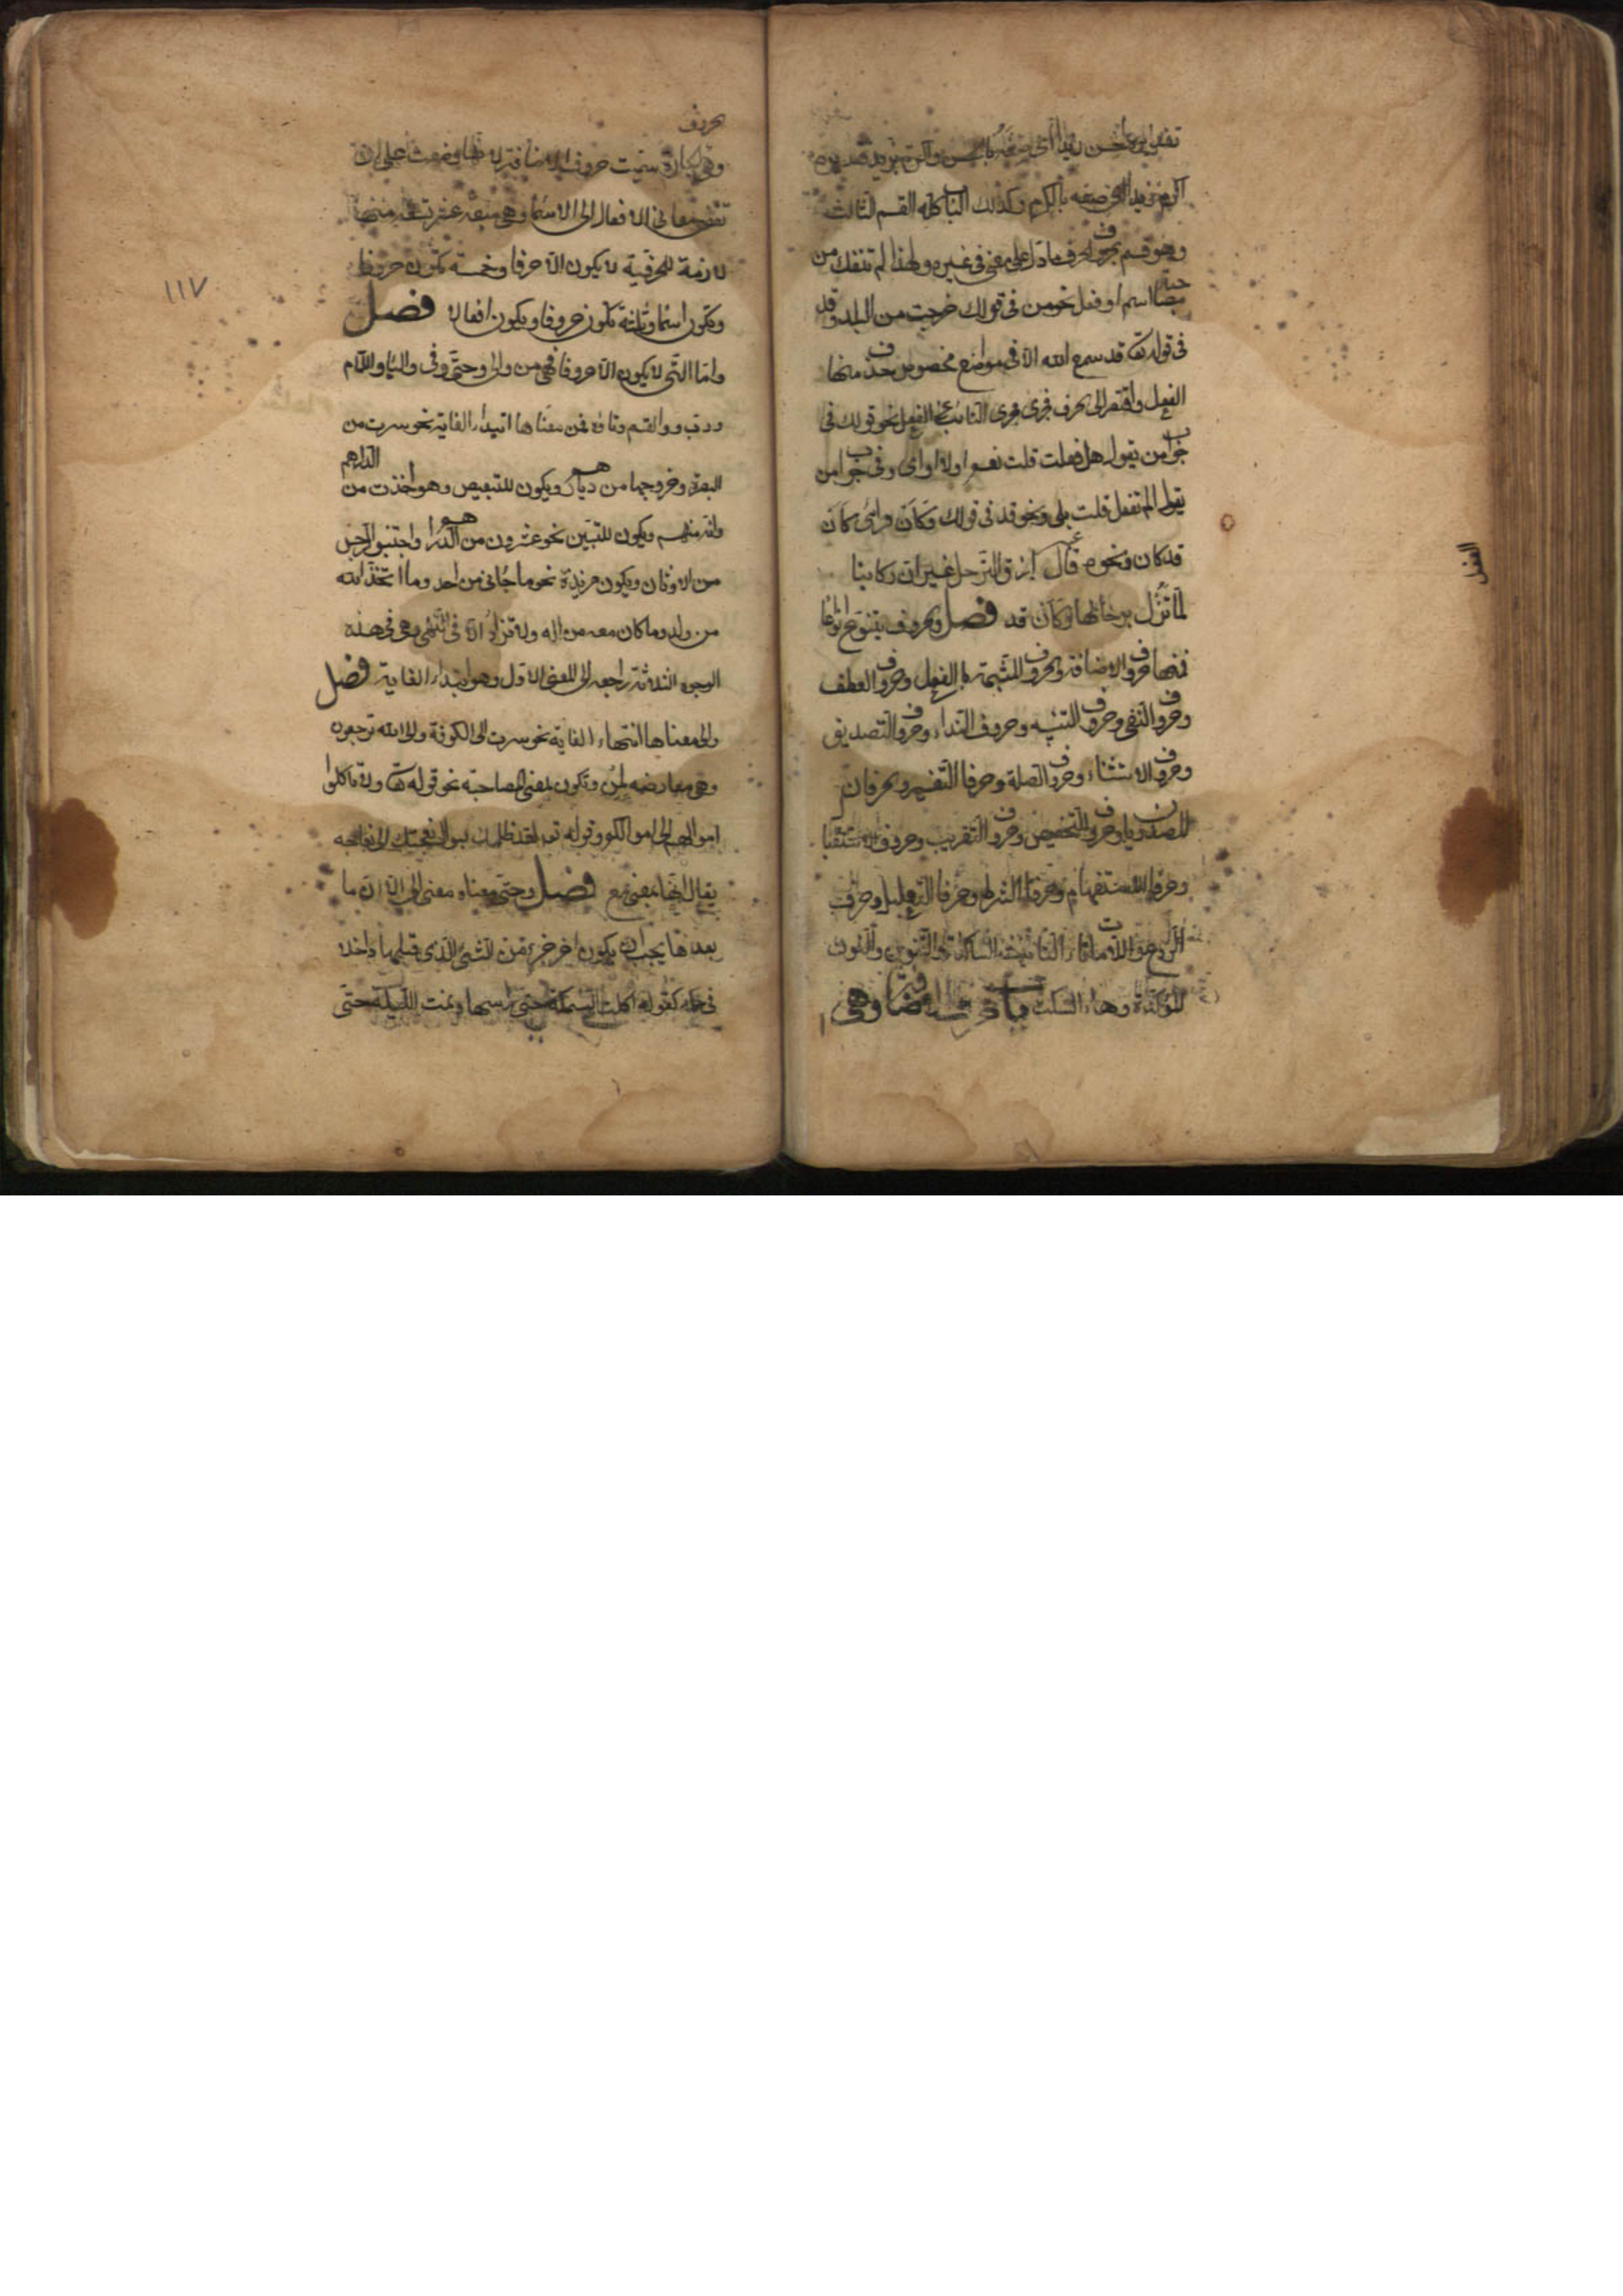 اكرم بزيد اى صفه بالكرم وكذلك الباب كله القسم الثالث
وهو قسم الحروف الحرف ما دل على معنى فى غيره ولهذا لم تنفك من
اسم او فعل نحو من فى قولك خرجت من البلد وقد
فى قوله تعالى قد سمع الله الا فى مواضع مخصوص حذف منها
الفعل واقتصر الى الحرف فجرى مجرى النائب عن الفعل نحو قولك فى
جواب من يقول هل فعلت قلت نعم او لا او اى وفى جواب من
يقول الم تفعل قلت بلى ونحو قد فى قولك وكأن
قد كان ونحوه قال ازف الترحل غير ان ركابنا
لما تزل برحالها وكأن قد فصل والحروف يتنوع انواعا
فمنها حروف الاضافة والحروف المشبهة بالفعل وحروف العطف
وحروف النفى وحروف التنبيه وحروف النداء وحروف التصديق
وحروف الاستثناء وحروف الصلة وحرفا التفسير والحرفان
المصدريان وحروف التحضيض وحروف التقريب وحروف الاستقبال
وحرفا الاستفهام وحرفا الشرط وحرفا التعليل وحرف
الردع واللامات وتاء التأنيث الساكنة والتنوين والنون
المؤكدة وهاء السكت
الفعل
حروف
وهى الجارة سميت حروف الاضافة لانها وضعت على ان
تفضى معانى الافعال الى الاسماء وهى سبعة عشر تسعة منها
لازمة للحرفية لا يكون الا حرفا وخمسة تكون حروفا
وتكون اسما وثلثة تكون حروفا ويكون افعالا فصل
واما التى لا يكون الا حروفا فهى من والى وحتى وفى والباء واللام
ورب وواو القسم وتاؤه فمن معناها ابتداء الغاية نحو سرت من
البصرة وخروجها من دياركم ويكون للتبعيض وهو اخذت من الدراهم
وانه منهم ويكون للتبين نحو عشرون من الدراهم واجتنبوا الرجس
من الاوثان ويكون مزيدة نحو ما جائنى من احد وما اتخذ الله
من ولد وما كان معه من اله ولا تزاد الا فى النفى وهى فى هذه
الوجوه الثلاثة راجعة الى المعنى الاول وهو ابتداء الغاية فصل
والى معناها انتهاء الغاية نحو سرت الى الكوفة والى الله ترجعون
وهى معارضه لمن وتكون بمعنى المصاحبة نحو قوله تعالى ولا تاكلوا
اموالهم الى اموالكم وقوله تعالى لقد ظلمك بسوال نعجتك الى نعاجه
يقال انها بمعنى مع فصل وحتى معناه معنى الى الا ان ما
بعدها يجب ان يكون اخر جزء من الشئ الذى قبلها داخلا
فى حكمه كقوله اكلت السمكة حتى راسها ونمت الليلة حتى
١١٧